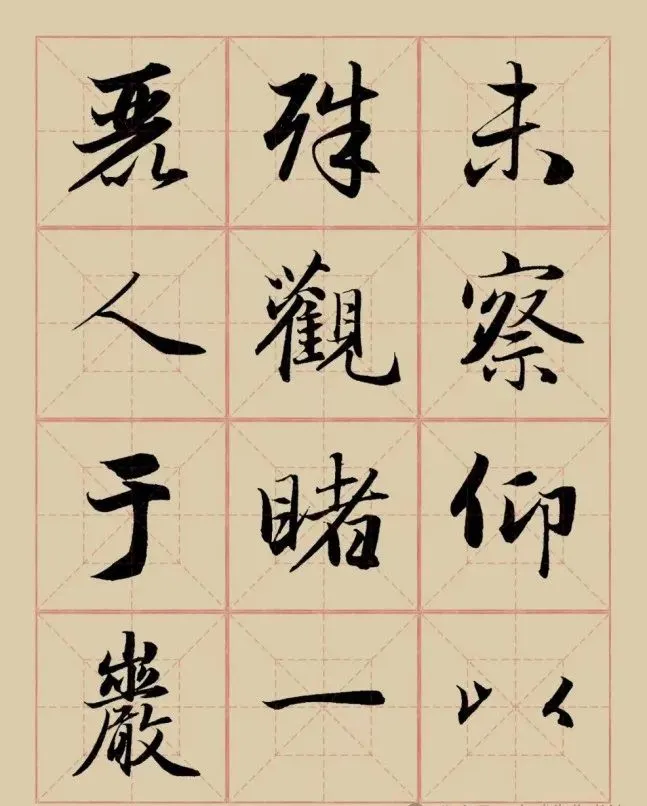 未察仰以
殊觀睹一
麗人于巖